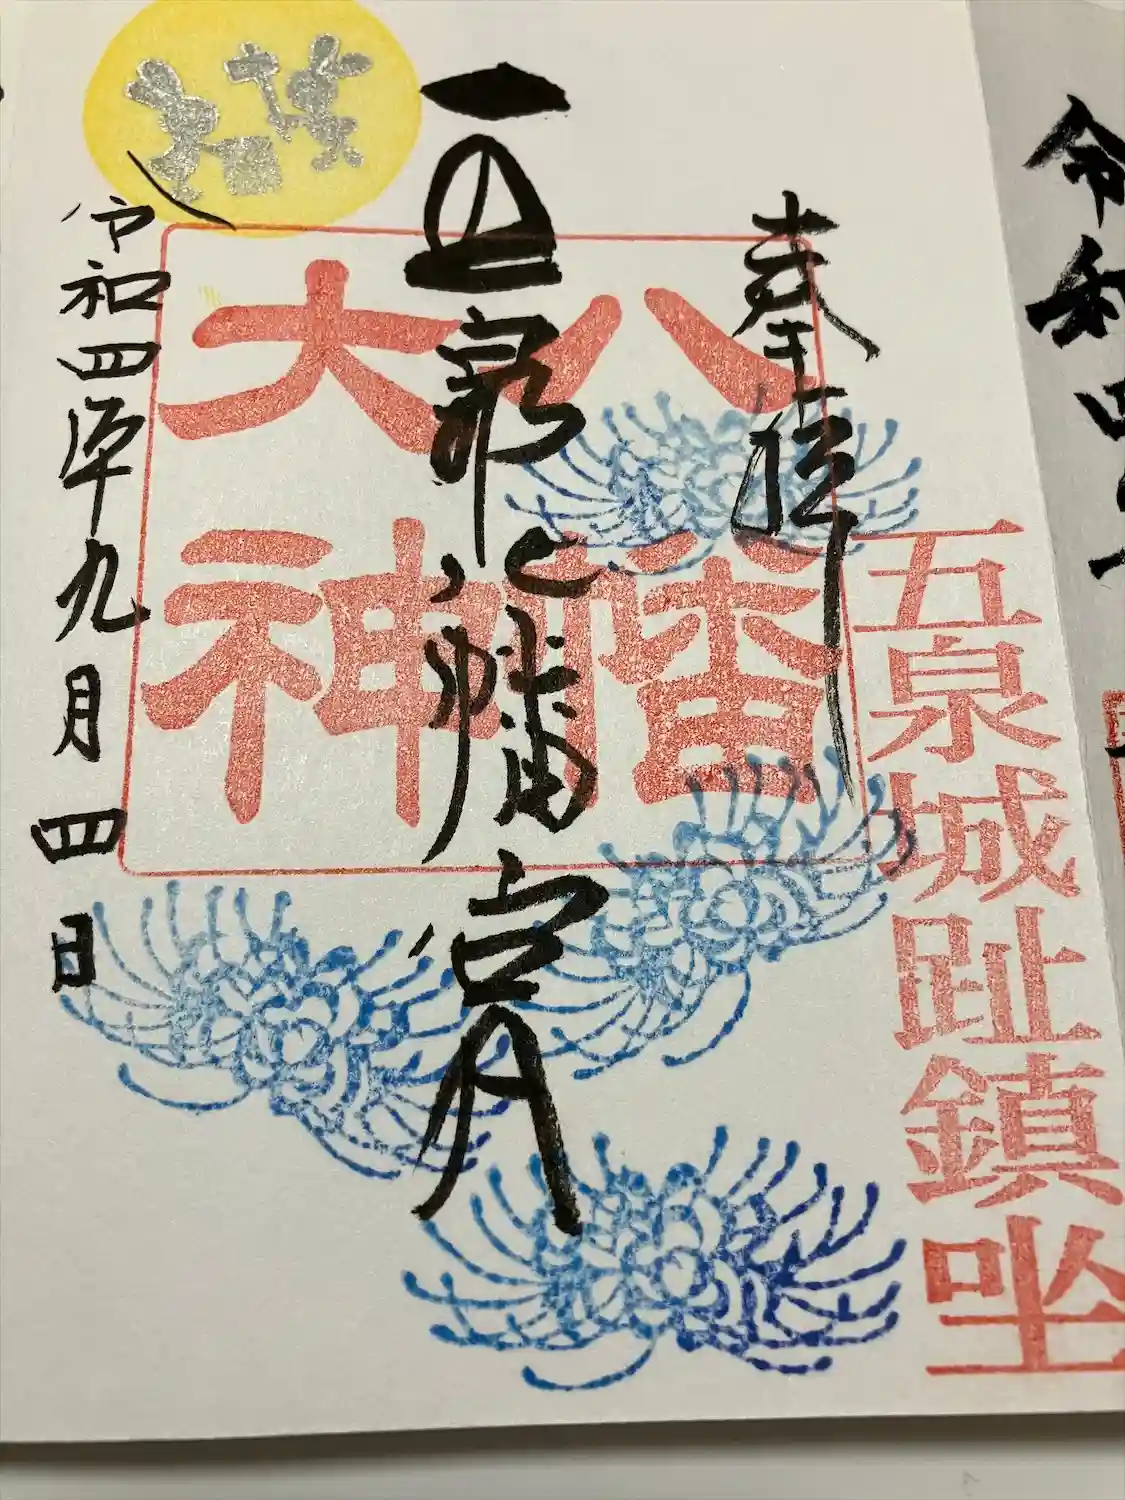 奉拝
五泉城趾鎮坐
八幡
大神
五泉八幡宮
令和四年九月四日
令和四年